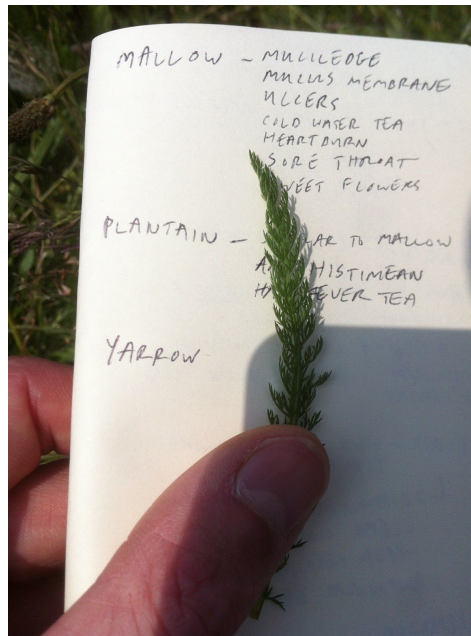 MALLOW - MUCILEDGE
MUCUS MEMBRANE
ULCERS
COLD WATER TEA
HEARTBURN
SORE THROAT
FLOWERS
PLANTAIN - TO MALLOW
HISTIMEAN
TEA
YARROW